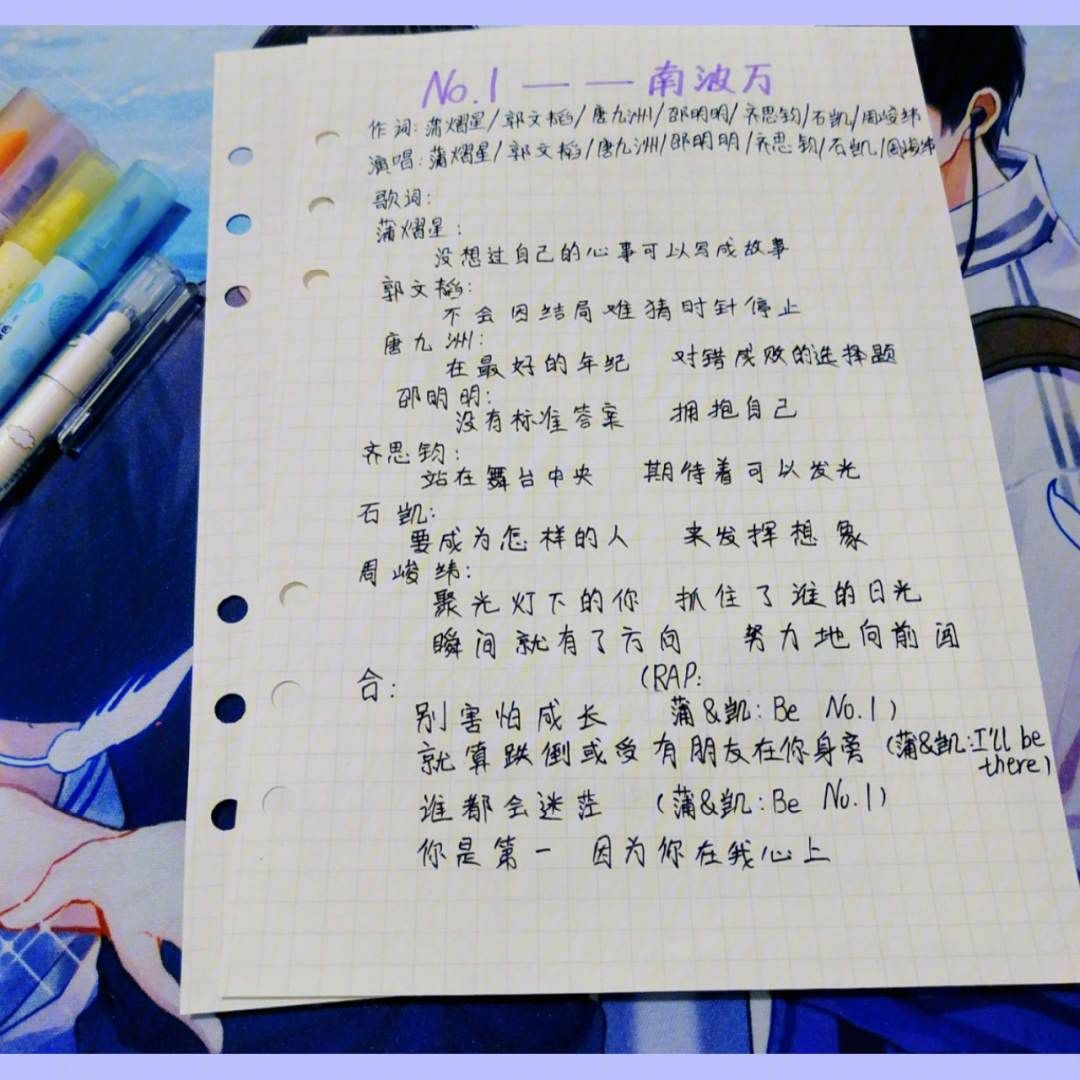 No.1——南波万
作词:蒲熠星/郭文韬/唐九洲/邵明明/齐思钧/石凯/周峻纬
演唱:蒲熠星/郭文韬/唐九洲/邵明明/齐思钧/石凯/周峻纬
歌词:
蒲熠星:
没想过自己的心事可以写成故事
郭文韬:
不会因结局难猜时针停止
唐九洲:
在最好的年纪 对错成败的选择题
邵明明:
没有标准答案 拥抱自己
齐思钧:
站在舞台中央 期待着可以发光
石凯:
要成为怎样的人 来发挥想象
周峻纬:
聚光灯下的你 抓住了谁的目光
瞬间就有了方向 努力地向前闯
合: (RAP:
别害怕成长 蒲&凯:Be No.1)
就算跌倒或受有朋友在你身旁(蒲&凯:I'll be
there)
谁都会迷茫 (蒲&凯:Be No.1)
你是第一 因为你在我心上